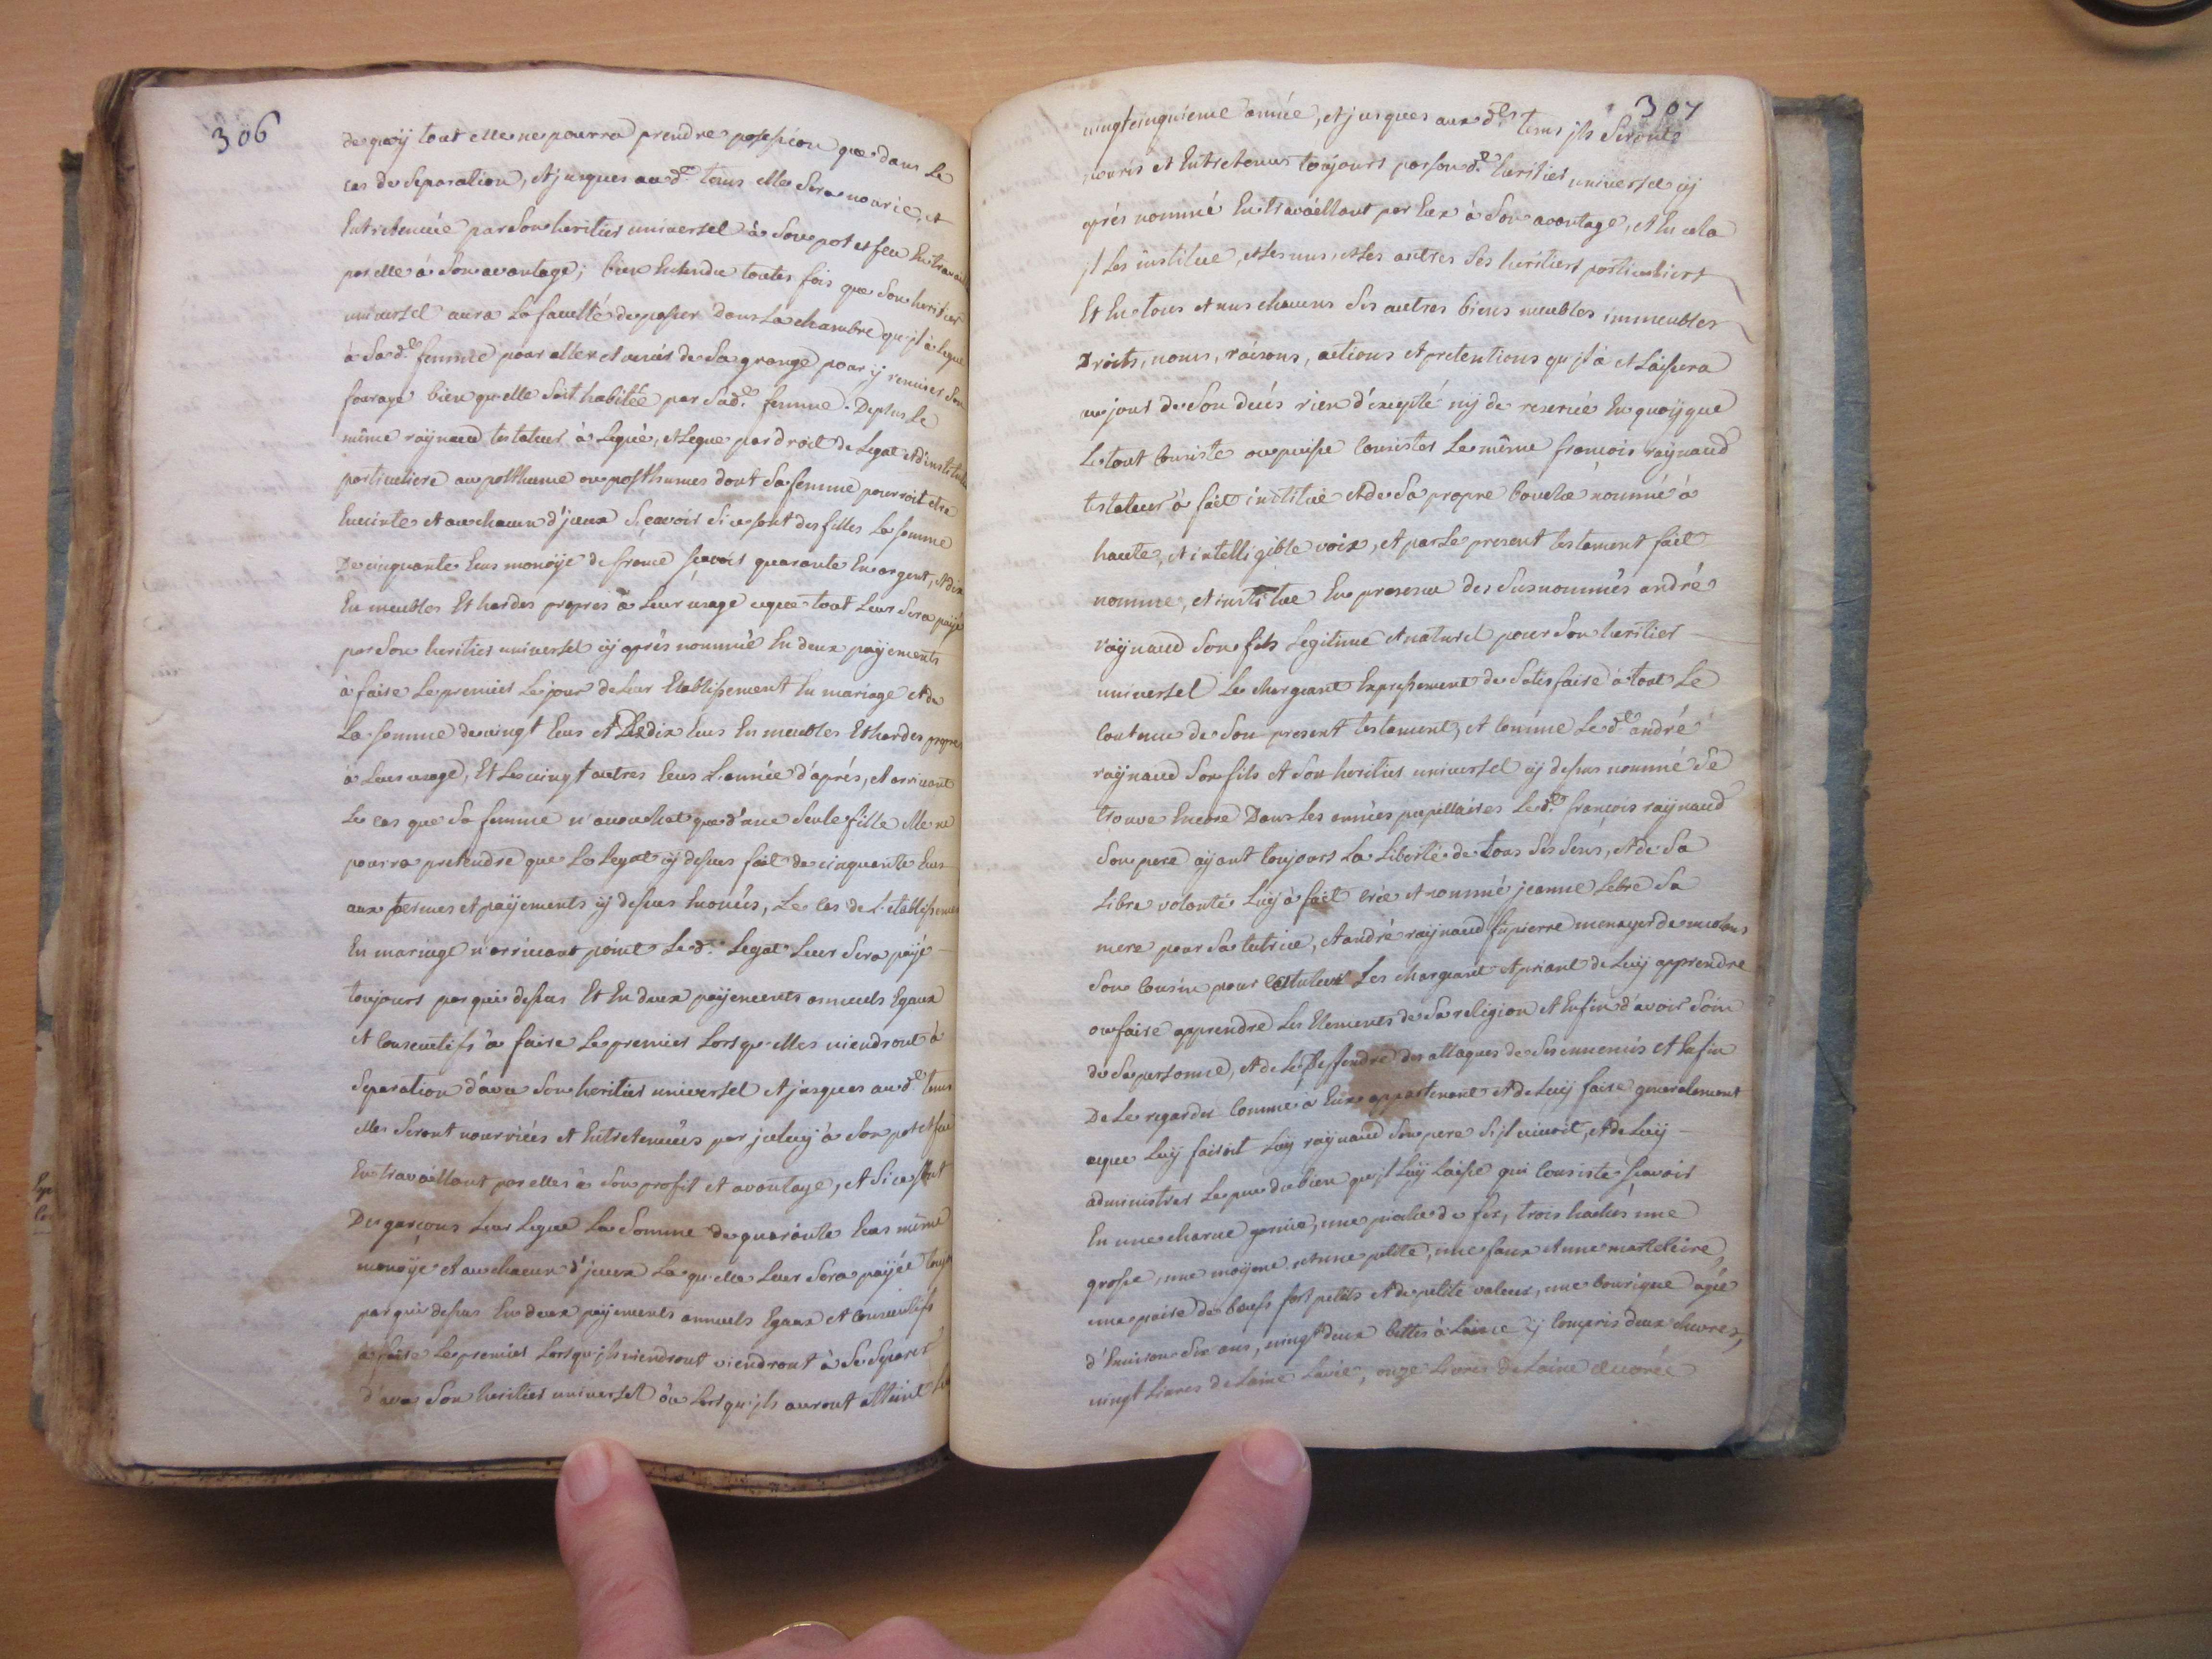 306
de quoÿ tout elle ne pourra prendre possession que dans le
cas de Separation, et jusques aud.t tems elle Sera nourie, et
Entretenüe par Son heritier universel à Son pot et feu En
par elle à Son avantage; bien Entendu toutes fois que Son heritier
universel aura la faculté de passer dans la chambre qu'jl à legué
à Sad.te femme pour aller et venir de Sa grange pour ÿ remiser Son
fourage bien qu'elle Soit habitée par Sad.te femme. De plus le
même raÿnaud testateur à legué, et legue par droit de legat et d'institution
particuliere au posthume ou posthumes dont Sa femme pourroit etre
Enceinte et au chacun d'jceux Sçavoir Si ce sont des filles la somme
De cinquante Ecus monoÿe de france sçavoir quarante En argent, et dix
En meubles Et hardes propres à leur usage ceque tout leur Sera païé
par Son heritier universel cÿ après nommé En deux païements
à faire le premier le jour de leur Etablissement En mariage et de
la somme de vingt Ecus et de dix Ecus En meubles Et hardes propres
à leur usage, Et les vingt autres Ecus l'année d'après, et arrivant
le cas que Sa femme n'accouchat que d'une Seule fille elle ne
pourra pretendre que le legat cÿ dessus fait de cinquante Ecus
aux termes et païements cÿ dessus Enoncés, le cas de l'etablissement
En mariage n'arrivant point le d.t legat leur Sera païé
toujours par qui dessus Et En deux païements annuels Egaux
et Consecutifs à faire le premier lorsqu'elles viendront à
Separation d'avec Son heritier universel et jusques aud.t tems
elles Seront nourriées et Entretenües par jceluÿ à Son pot et feu
En travaillant par elles à Son profit et avantage, et Si ce sont
Des garçons leur legue la Somme de quarante Ecus même
monoÿe et au chacun d'jceux la qu'elle leur Sera païée
par qui dessus En deux païements annuels Egaux et Consecutifs
à faire le premier lorsqu'jls viendront viendront à Se Separer
d'avec Son heritier universel ou lorsqu'jls auront atteint
307
vingt cinquieme année, et jusques aux d.ts tems jls Seront
nouris et Entretenus toujours par Son d.t heritier universel cÿ
après nommé En travaillant par Eux à Son avantage, et En cela
jl les institue, et les uns, et les autres Ses heritiers particuliers
Et En tous et uns chacuns Ses autres biens meubles immeubles
Droits, noms, raisons, actions et pretentions qu'jl à et laissera
au jour de Son decés rien d'excepté nÿ de reservé En quoÿ que
le tout Consiste ou puisse Consister le même françois raÿnaud
testateur à fait institué et de Sa propre bouche nommé à
haute, et intelligible voix, et par le present testament fait
nomme, et institue En presence des Susnommés andré
raÿnaud Son fils legitime et naturel pour Son heritier
universel le chargeant Expressement de Satisfaire à tout le
Contenu de Son present testament, et Comme le d.t andré
raÿnaud Son fils et Son heritier universel cÿ dessus nommé Se
trouve Encore Dans les années pupillaires le d.t françois raÿnaud
Son pere aÿant toujours la liberté de tous Ses Sens, et de Sa
libre volonté luÿ à fait crée et nommé jeanne Lebre Sa
mere pour Sa tutrice, et andré raÿnaud fu pierre menager de
Son Cousin pour les chargeant et priant de luÿ apprendre
ou faire apprendre les Elements de Sa religion et Enfin d'avoir Soin
de Sa personne, et de le Deffendre des attaques de Ses ennemis et Enfin
De le regarder Comme à Eux appartenant et de luÿ faire generalement
ceque luÿ faisoit luÿ raÿnaud Son pere S'jl vivoit, et de luÿ
administrer le peu de bien qu'jl luÿ laisse qui Consiste Sçavoir
En une charue garnie, une pioche de fer, trois haches une
grosse, une moÿene et une petite, une faux et une marteliere,
une paire de bœufs fort petits et de petite valeur, une bourique agée
d'Environ Six ans, vingt deux bettes à laine cÿ Compris deux chevres,
vingt livres de laine lavée, onze livres de laine